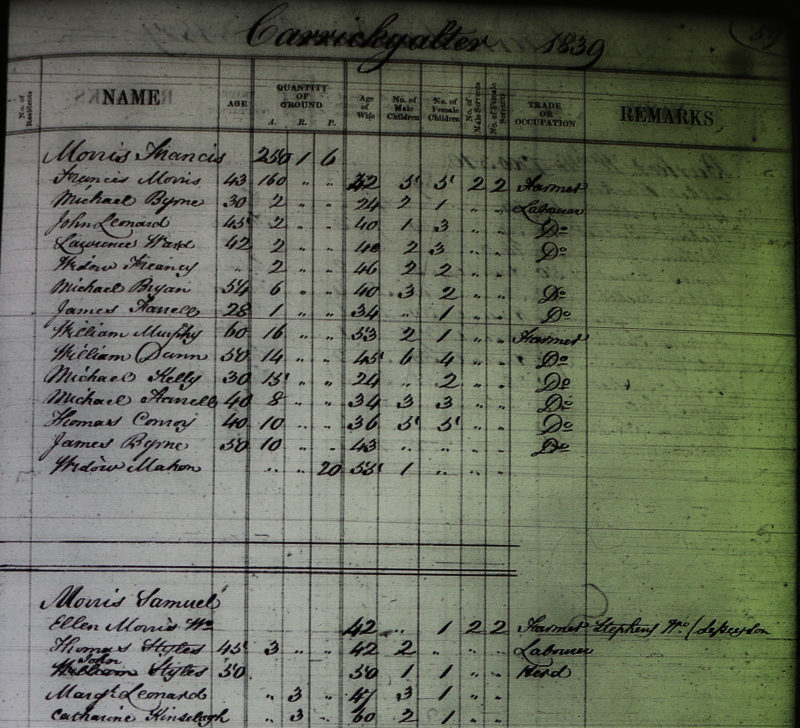 Carrickgalter 1839
No. of Residents NAME AGE QUANTITY OF GROUND A. R. P. Age of Wife No. of Male Children No. of Female Children No. of Male Servants No. of Female Servants TRADE OR OCCUPATION REMARKS
Morris Francis 250 1 6
Francis Morris 43 160 " " 42 5 5 2 2 Farmer
Michael Byrne 30 2 " " 24 2 1 " " Labourer
John Leonard 45 2 " " 40 1 3 " " Do
Lawrence Ward 42 2 " " 40 2 3 " " Do
Widow Freaney " 2 " " 46 2 2 " "
Michael Bryan 54 6 " " 40 3 2 " " Do
James Farrell 28 1 " " 34 " 1 " " Do
William Murphy 60 16 " " 53 2 1 " " Farmer
William Dunn 50 14 " " 45 6 4 " " Do
Michael Kelly 30 15 " " 24 " 2 " " Do
Michael Farrell 40 8 " " 34 3 3 " " Do
Thomas Conroy 40 10 " " 36 5 5 " " Do
James Byrne 50 10 " " 43 " " " " Do
Widow Mahon " " 20 55 1 " " "
Morris Samuel
Ellen Morris Wo 42 " 1 2 2 Farmer Stephens Wo
Thomas Styles 45 3 " " 42 2 " " " Labourer
John Styles 50 50 1 1 " " Herd
Margt Leonard " 3 " 47 3 1 " "
Catharine Kinselagh " 3 " 60 2 1 " "